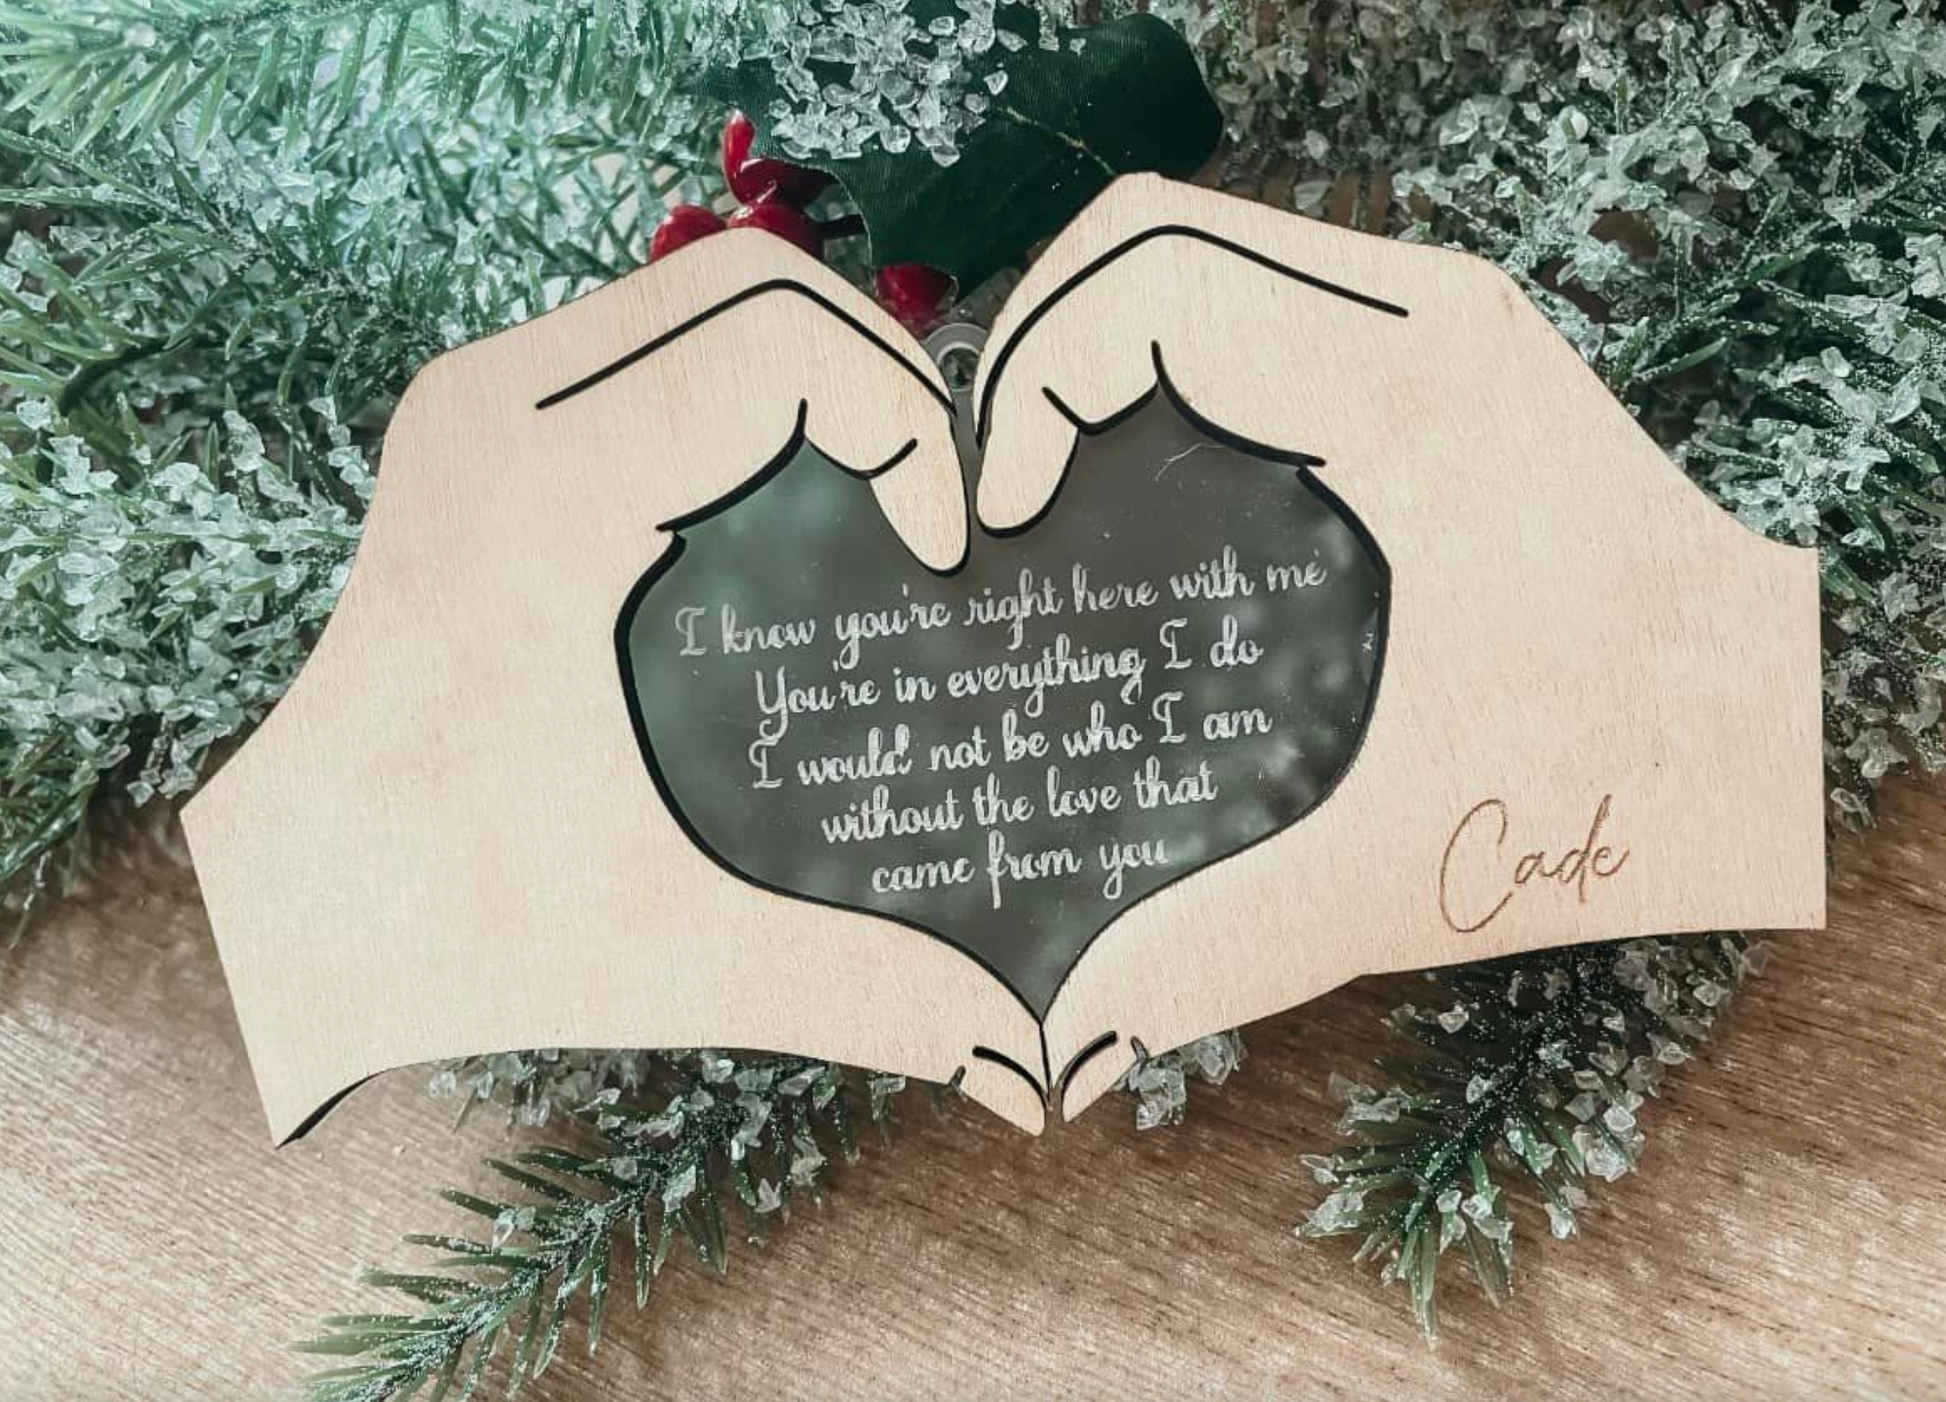 I know you're right here with me
You're in everything I do
I would not be who I am
without the love that
came from you
Cade